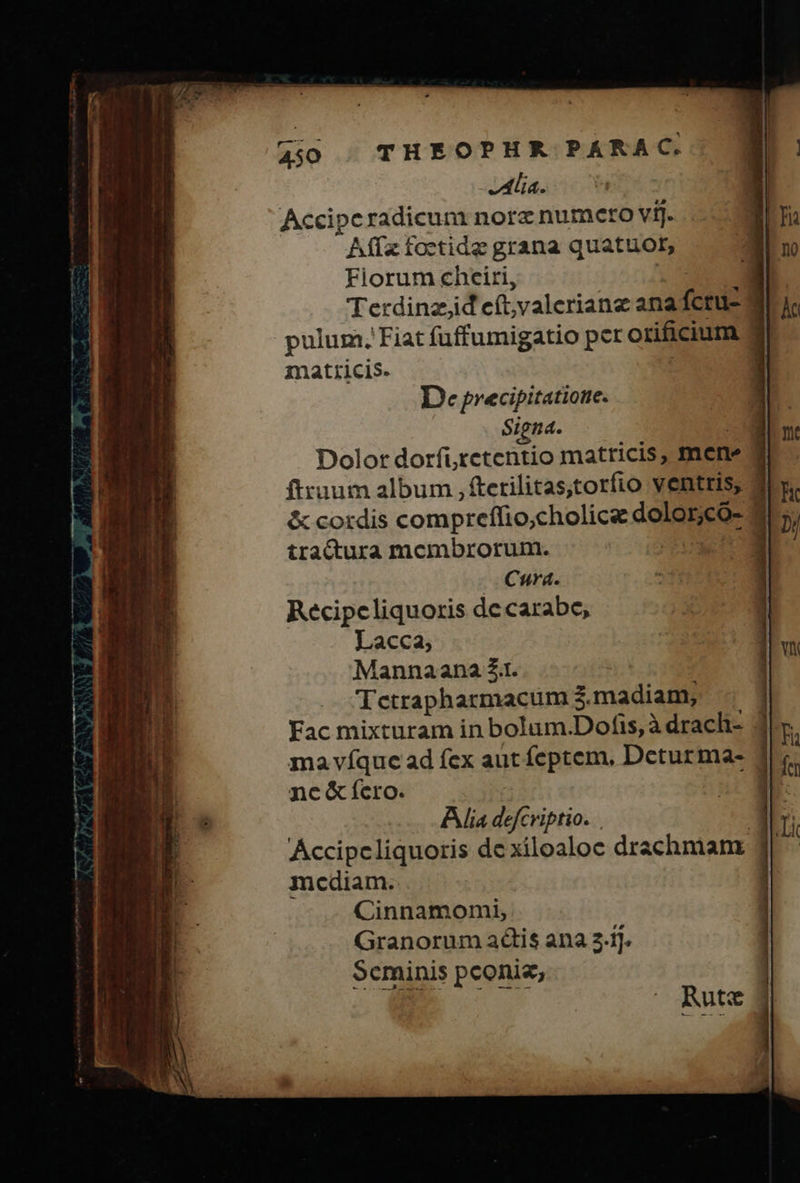 450 THEOPHR PARAC.
Alia.
Accipe radicum noræ numero vij.
Aſſæ fœtidæ grana quatuor,
Florum cheiri,
Terdinæ, id eſt, valerianæ ana ſcru-
pulum. Fiat ſuffumigatio per orificium
matricis.
De præcipitatione.
Signa.
Dolor dorſi, retentio matricis, men-
ſtruum album, ſterilitas, torſio ventris,
& cordis compreſſio, cholicæ dolor, cō-
tractura membrorum.
Cura.
Recipe liquoris de carabe,
Lacca,
Manna ana ℥.ı.
Tetrapharmacum ℥. madiam,
Fac mixturam in bolum. Doſis, à drach-
ma vſque ad ſex aut ſeptem. Detur ma-
ne & ſero.
Alia deſcriptio.
Accipe liquoris de xiloaloe drachmam
mediam.
Cinnamomi,
Granorum actis ana ʒ.ij.
Seminis peoniæ,
Rutæ